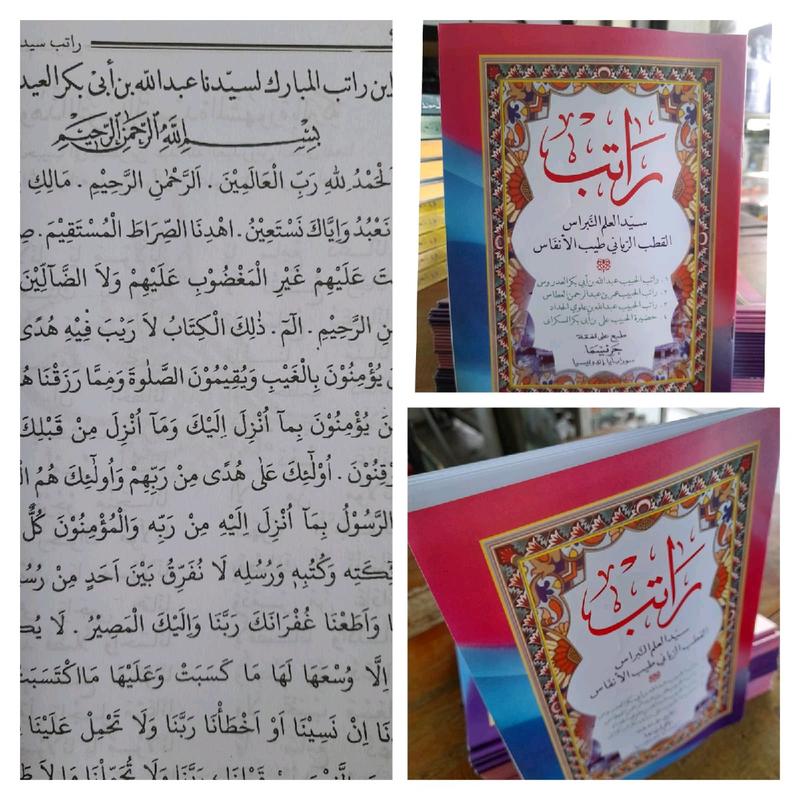 راتب سيد
ابن راتب المبارك لسيّدنا عبد الله بن أبي بكر العيد
بِسْمِ اللهِ الرَّحْمٰنِ الرَّحِيْمِ
لَحْمْدُ لِلّٰهِ رَبِّ الْعَالَمِيْنَ . اَلرَّحْمٰنِ الرَّحِيْمِ . مَالِكِ
نَعْبُدُ وَاِيَّاكَ نَسْتَعِيْنُ . اهْدِنَا الصِّرَاطَ الْمُسْتَقِيْمَ . صِ
تَ عَلَيْهِمْ غَيْرِ الْمَغْضُوْبِ عَلَيْهِمْ وَلَا الضَّآلِّيْنَ
نِ الرَّحِيْمِ . الٓمٓ . ذٰلِكَ الْكِتَابُ لَا رَيْبَ فِيْهِ هُدًى
يُؤْمِنُوْنَ بِالْغَيْبِ وَيُقِيْمُوْنَ الصَّلٰوةَ وَمِمَّا رَزَقْنَا هُ
نَ يُؤْمِنُوْنَ بِمَآ اُنْزِلَ اِلَيْكَ وَمَآ اُنْزِلَ مِنْ قَبْلِكَ
قِنُوْنَ . اُوْلٰٓئِكَ عَلٰى هُدًى مِنْ رَبِّهِمْ وَاُولٰٓئِكَ هُمُ الْ
الرَّسُوْلُ بِمَآ اُنْزِلَ اِلَيْهِ مِنْ رَبِّه وَالْمُؤْمِنُوْنَ كُلٌّ
ئِكَتِه وَكُتُبِه وَرُسُلِه لَا نُفَرِّقُ بَيْنَ اَحَدٍ مِنْ رُسُ
وَاَطَعْنَا غُفْرَانَكَ رَبَّنَا وَاِلَيْكَ الْمَصِيْرُ . لَا يُكَ
اِلَّا وُسْعَهَا لَهَا مَا كَسَبَتْ وَعَلَيْهَا مَااكْتَسَبَتْ
نَا اِنْ نَسِيْنَا اَوْ اَخْطَأْنَا رَبَّنَا وَلَا تَحْمِلْ عَلَيْنَا
قَبْلِنَا ، رَبَّنَا وَلَا تُحَمِّلْنَا مَا لَا طَ
راتب
سيّد العلم النبراس
القطب الرباني طيب الأنفاس
١. راتب الحبيب عبد الله بن أبي بكر العيدروس
٢. راتب الحبيب عمر بن عبد الرحمن العطاس
٣. راتب الحبيب عبد الله بن علوي الحداد
٤. حضيرة الحبيب علي بن أبي بكر السكران
طبع على نفقة
سورابايا إندونيسيا
راتب
سيّد العلم النبراس
القطب الرباني طيب الأنفاس